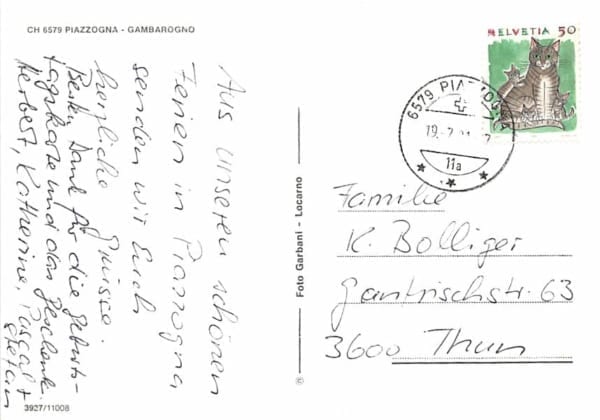 CH 6579 PIAZZOGNA - GAMBAROGNO
Aus unseren schönen
Ferien in Piazzogna
senden wir Euch
herzliche
Grüsse.
Besten Dank für die Geburts-
tagskarte und das Geschenk.
Herbert, Katherine, Pascal +
Stefan
3927/11008
Foto Garbani - Locarno
©
HELVETIA 50
6579 PIAZZOGNA
19.-7.
11a
Familie
K. Bolliger
Gantrischstr. 63
3600 Thun